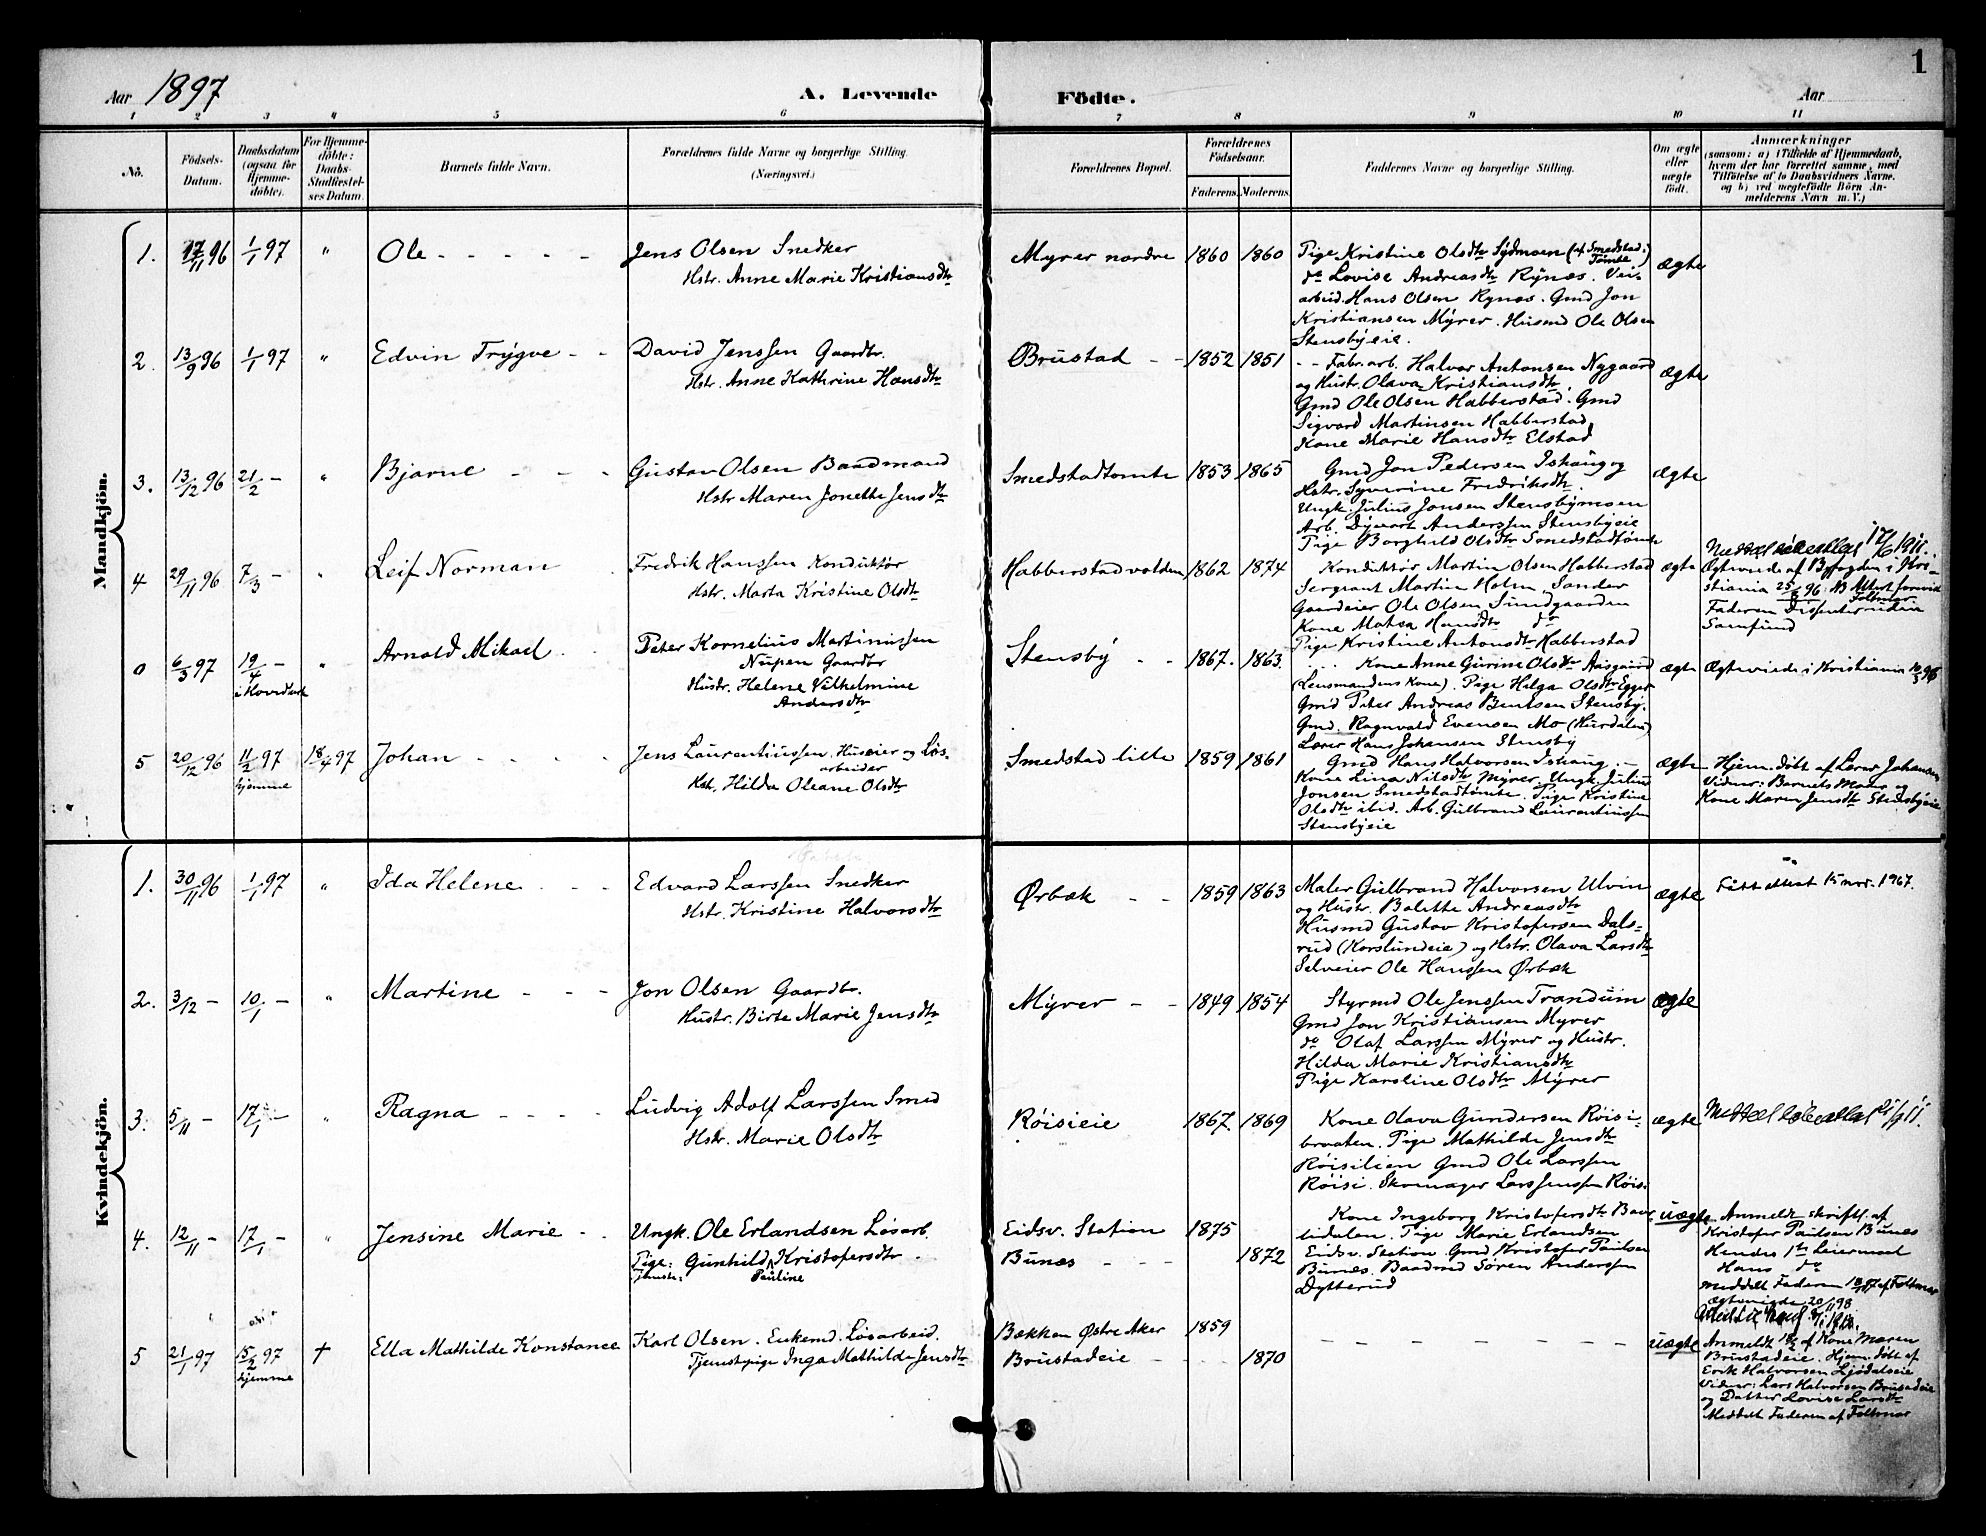 1
Aar 1897
A. Levende
Födte.
Aar
1 2 3 4 5 6 7 8 9 10 11
No.
Födsels-
Datum.
Daabsdatum
(ogsaa for
Hjemme-
döbte).
For Hjemme-
döbte:
Daabs-
Stadfæstel-
ses Datum.
Barnets fulde Navn.
Forældrenes fulde Navne og borgerlige Stilling.
(Næringsvei.)
Forældrenes Bopæl.
Forældrenes
Födselsaar.
Faderens. Moderens.
Faddernes Navne og borgerlige Stilling.
Om ægte
eller
uægte
födt.
Anmærkninger
(saasom: a) i Tilfælde af Hjemmedaab,
hvem der har forrettet samme, med
Tilföielse af to Daabsvidners Navne,
og b) ved uægtefödte Börn An-
melderens Navn m. V.)
Mandkjön.
1. 17/11 96 1/1 97 " Ole
Jens Olsen Snedker
Hstr. Anne Marie Kristiansdtr
Myrer nordre 1860 1860
Pige Kristine Olsdtr Sydmoen (af Smedstad-
Tomte)
do Lovise Andreasdtr Rynæs. Vei-
arbeid. Hans Olsen Rynæs. Gmd Jon
Kristiansen Myrer. Husmd Ole Olsen
Stensbyeie.
ægte
2. 13/9 96 1/1 97 " Edvin Trygve
David Jenssen Gaardbr.
Hstr. Anne Kathrine Hansdtr
Brustad 1852 1851
Fabr. arb. Halvor Antonsen Nygaard
og Hustr. Olava Kristiansdtr.
Gmd Ole Olsen Habberstad. Gmd
Sigvard Martinsen Habberstad
Kone Marie Hansdtr Elstad
ægte
3. 13/12 96 21/2 - " Bjarne
Gustav Olsen Baadmand
Hstr Maren Jonette Jensdtr
Smedstadtomte 1853 1865
Gmd Jon Pedersen Ishaug og
Hstr. Syverine Fredriksdtr.
Ungk. Julius Jonsen Stensbymoen
Arb. Dyvart Anderssen Stensbyeie
Pige Borghild Olsdtr Smedstadtomte
ægte
4 29/11 96 7/3 - " Leif Norman
Fredrik Hanssen Konduktør
Hstr. Marta Kristine Olsdtr
Habberstadvolden 1862 1874
Konduktør Martin Olsen Habberstad
Sergeant Martin Holm Sander
Gaardeier Ole Olsen Sundgaarden
Kone Matea Hansdtr do
Pige Kristine Antonsdtr Habberstad
ægte
Ægteviede af Byfogden i Kri-
stiania
Faderen Dissenter udtra
Samfund
0 6/3 97 19/4 - " Arnold Mikael
i Hovedsk
Peter Kornelius Martinussen
Nupen Gaardbr
Hustr. Helene Vilhelmine
Andersdtr
Stensby 1867. 1863.
Kone Anne Gurine Olsdtr Aasgaard
(Lensmandens Kone). Pige Helga Olsdtr Egger
Gmd Peter Andreas Bentsen Stensby.
Gmd. Ragnvald Evensen Mo (Hurdalen)
Lærer Hans Johansen Stensby
ægte
Ægteviede i Kristiania
5 20/12 96 11/2 97 18/4 97 Johan
hjemme
Jens Laurentiussen. Huseier og Løs-
arbeider
Hstr. Hilda Oleane Olsdtr
Smedstad lille 1859 1861
Gmd Hans Halvorsen Ishaug.
Kone Lina Nilsdtr Myrer. Ungk. Julius
Jonsen Smedstadtomte. Pige Kristine
Olsdtr ibid. Arb. Gulbrand Laurentiussen
Stensbyeie
ægte
Hjem. døbt af Lærer Johansen
Vidner: Barnets Moder og
Kone Maren Jensdtr Stensbyeie
Kvindekjön.
1. 30/11 96 1/1 97 " Ida Helene
Edvard Larssen Snedker
Hstr. Kristine Halvorsdtr
Ørbæk 1859 1863
Maler Gulbrand Halvorsen Ulvin
og Hustr. Bolette Andreasdtr
Husmd Gustav Kristofersen Dals-
rud (Korslundeie) og Hstr. Olava Larsdtr
Selveier Ole Hanssen Ørbæk
ægte
Født attest 15 nov. 1967.
2. 3/12 - 10/1 - " Martine
Jon Olsen Gaardbr.
Hustr. Birte Marie Jensdtr
Myrer 1849 1854
Styrmd Ole Jenssen Trandum
Gmd Jon Kristiansen Myrer
do Olaf Larssen Myrer og Hustr.
Hilda Marie Kristiansdtr
Pige Karoline Olsdtr Myrer
ægte
3. 5/11 - 17/1 - " Ragna
Ludvig Adolf Larssen Smed
Hstr. Marie Olsdtr
Røisieie 1867. 1869
Kone Olava Gundersen Røisi-
braaten. Pige Mathilde Jensdtr
Røisilien Gmd Ole Larssen
Røisi. Skomager Larssenssen Røisi
ægte
4. 12/11 - 17/1 - " Jensine Marie
Ungk. Ole Erlandsen Løsarb.
Pige: Gunhild Kristofersdtr
Tjeneste: Pauline
Eidsv. Station 1875
Bunæs 1872
Kone Ingeborg Kristofersdtr
lidalen. Pige Marie Erlandsen
Eidsv. Station. Gmd Kristofer Paulsen
Bunæs. Baadmd Søren Anderssen
Dytterud
uægte
Anmeldt skriftl. af
Kristofer Paulsen Bunæs
Hendes 1ste Leiermaal
Hans do
Meddelt Faderen 18/1 97 af Foltmar
Ægteviede 20/11 98.
5 21/1 97 15/2 97 † Ella Mathilde Konstance
hjemme
Karl Olsen. Enkemd. Løsarbeid.
Tjenestepige Inga Mathilde Jensdtr
Bækken Østre Aker 1859
Brustadeie 1870
uægte
Anmeldt af Kone Maren
Brustadeie. Hjem. døbt af
Erik Halvorsen Ljødalseie
Vidner: Lars Halvorsen Brustadeie
og Datter Lovise Larsdtr
Meddelt Faderen af Foltmar